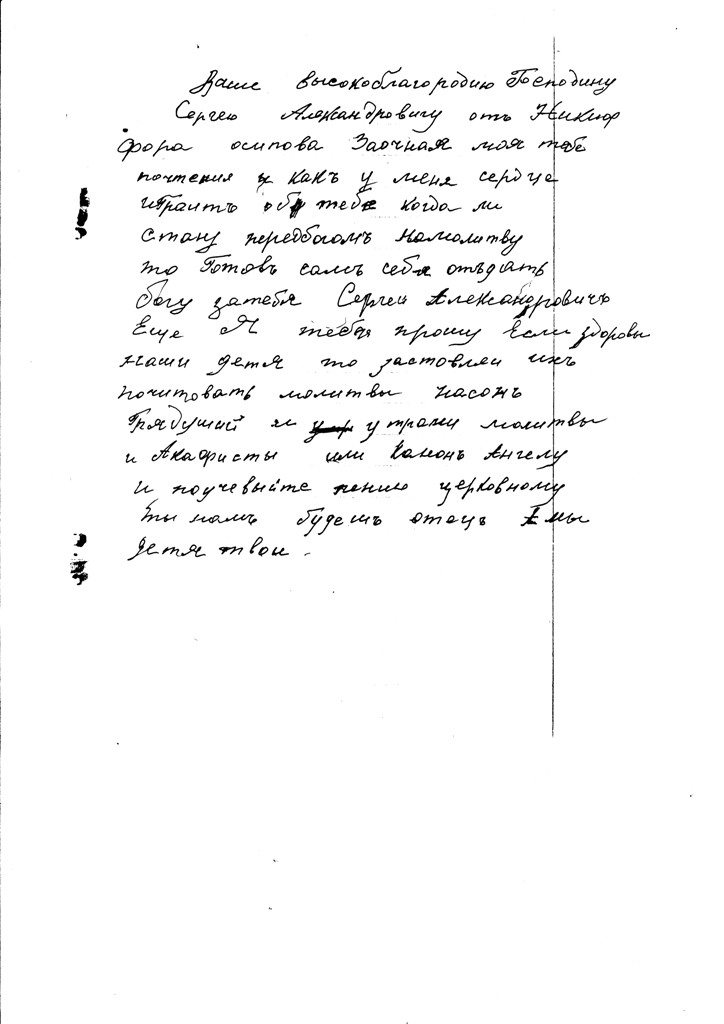 Ваше высокоблагородию Господину
Сергею Александровичу отъ Никиф
фора осипова Заочная моя тебе
почтения и какъ у меня сердце
играитъ об тебе когда ли
стану передбогомъ намолитву
то Готовъ самъ себя отъдать
богу затебя Сергеи Александровичъ
Еще Я тебя прошу Если здоровы
наши детя то заставлеи ихъ
почитовать молитвы насонъ
Грядущий и утрами молитвы
и Акафисты или Канонъ Ангелу
и поучевыйте пению церковному
ты намъ будешъ отець А мы
детя твои.